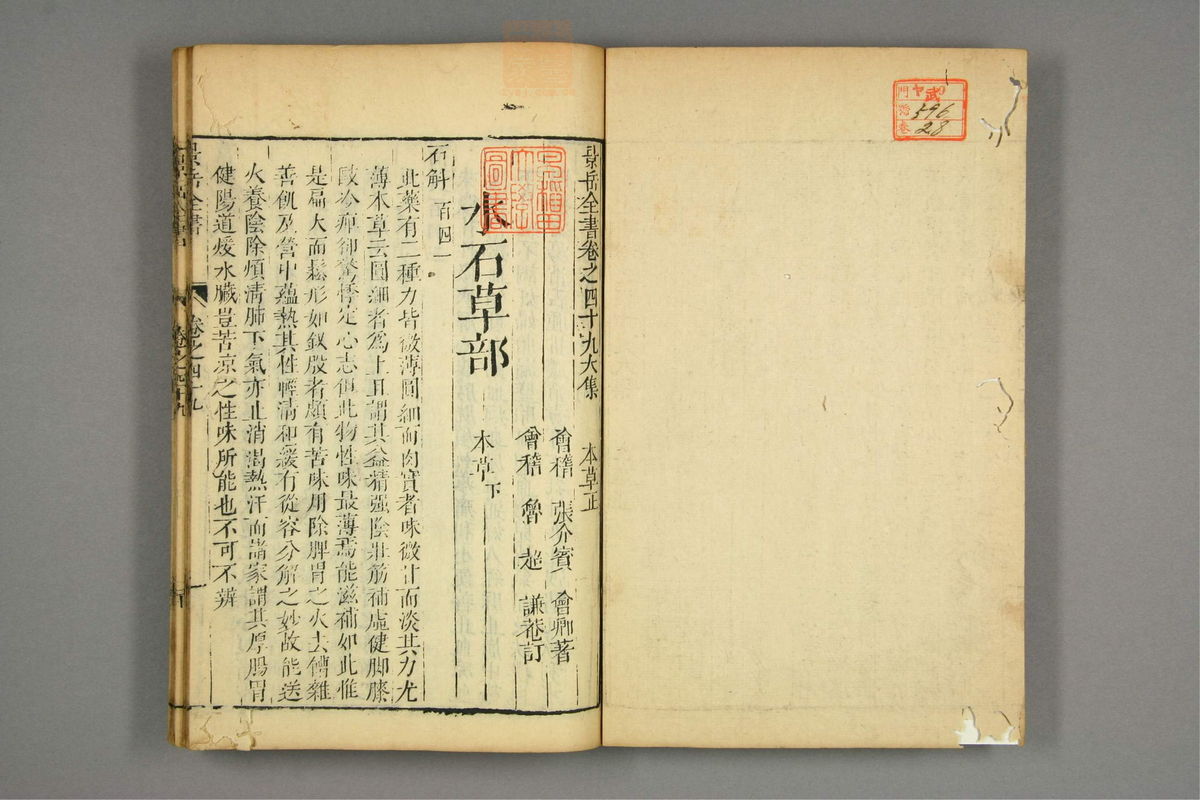 門 ヤ 武
號 596
卷 28
景岳全書卷之四十九大集 本草正
會稽 張介賓 會卿著
會稽 魯超 謙菴訂
早稲田大學圖書
本草下
水石草部
石斛 百四一
此藥有二種力皆微薄圓細而肉實者味微甘而淡其力尤
薄本草云圓細者爲上且謂其益精强陰壯筋補虛健脚膝
驅冷痺卻驚悸定心志但此物性味最薄焉能滋補如此惟
是扁大而鬆形如釵股者頗有苦味用除脾胃之火去嘈雜
善飢及營中蘊熱其性輕淸和緩有從容分解之妙故能送
火養陰除煩淸肺下氣亦止消渴熱汗而諸家謂其厚腸胃
健陽道煖水臟豈苦凉之性味所能也不可不辨
景岳全書 卷之四十九